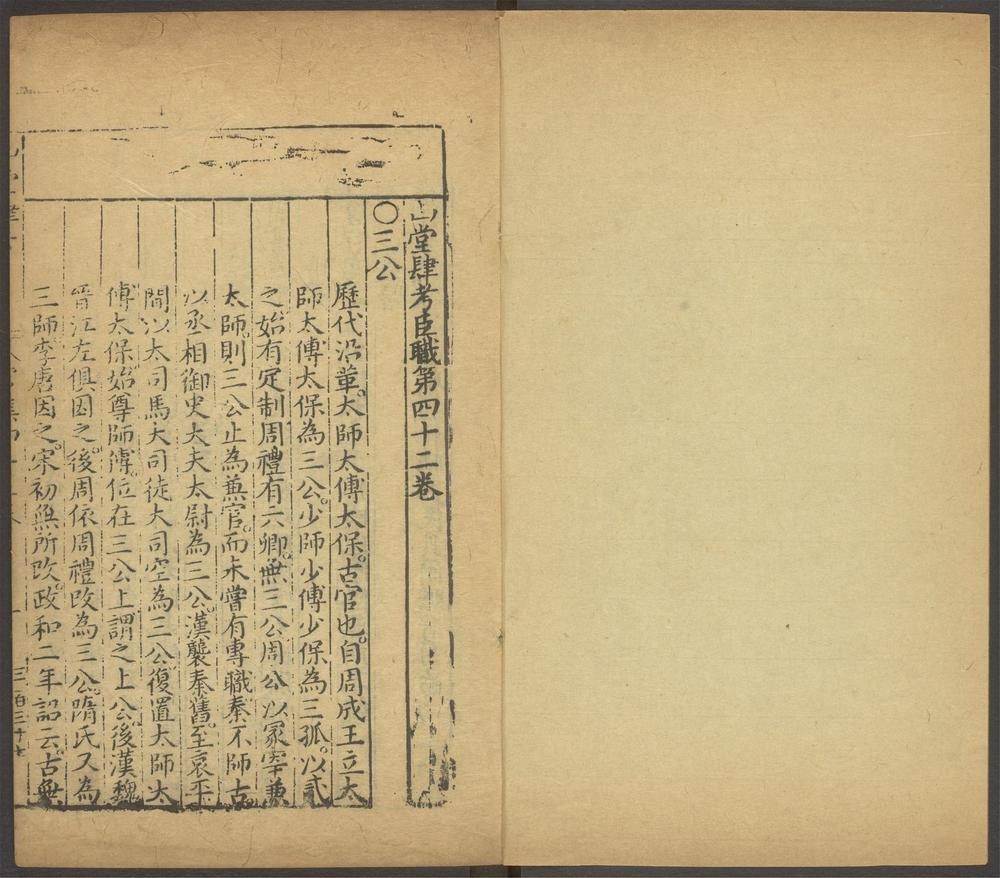 山堂肆考臣職第四十二卷
〇三公
歷代沿革。太師太傅太保。古官也。自周成王立太
師太傅太保為三公。少師少傅少保為三孤。以貳
之始有定制周禮有六卿。無三公周公以冢宰兼
太師。則三公止為兼官。而未嘗有專職秦不師古。
以丞相御史大夫太尉為三公。漢襲秦舊。至哀平
間以大司馬大司徒大司空為三公。復置太師太
傅太保。始尊師傅。位在三公上謂之上公。後漢魏
晉江左俱因之。後周依周禮改為三公。隋氏又為
三師。李唐因之。宋初無所改。政和二年詔云。古無